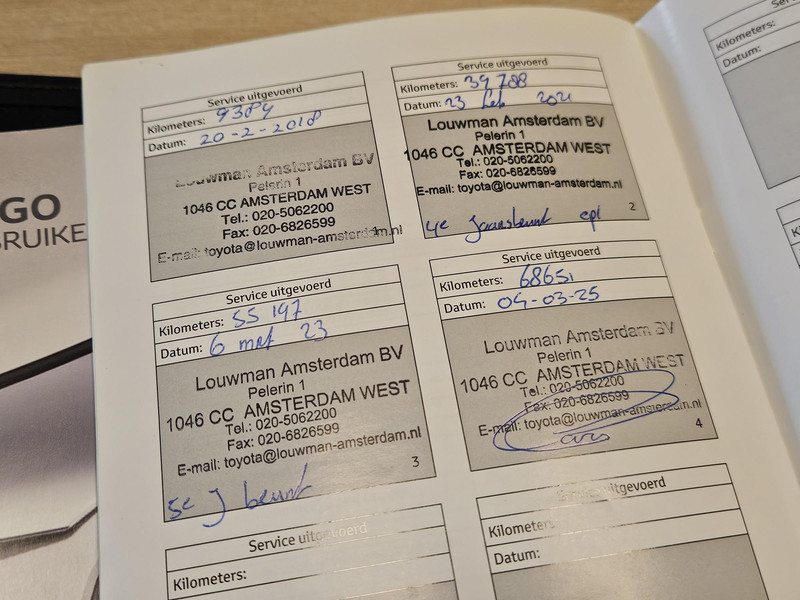 GO
BRUIKE
Service uitgevoerd
Kilometers: 9384
Datum: 20-2-2018
Louwman Amsterdam BV
Pelerin 1
1046 CC AMSTERDAM WEST
Tel.: 020-5062200
Fax: 020-6826599
E-mail: toyota@louwman-amsterdam.nl
1
Service uitgevoerd
Kilometers: 39788
Datum: 23 feb 2021
Louwman Amsterdam BV
Pelerin 1
1046 CC AMSTERDAM WEST
Tel.: 020-5062200
Fax: 020-6826599
E-mail: toyota@louwman-amsterdam.nl
2
4e
Service uitgevoerd
Kilometers: 55 197
Datum: 6 mrt 23
Louwman Amsterdam BV
Pelerin 1
1046 CC AMSTERDAM WEST
Tel.: 020-5062200
Fax: 020-6826599
E-mail: toyota@louwman-amsterdam.nl
3
5e J beurt
Service uitgevoerd
Kilometers: 68651
Datum: 04-03-25
Louwman Amsterdam BV
Pelerin 1
1046 CC AMSTERDAM WEST
Tel.: 020-5062200
Fax: 020-6826599
E-mail: toyota@louwman-amsterdam.nl
4
Service uitgevoerd
Kilometers:
Service uitgevoerd
Kilometers:
Datum:
Kilometers:
Datum: